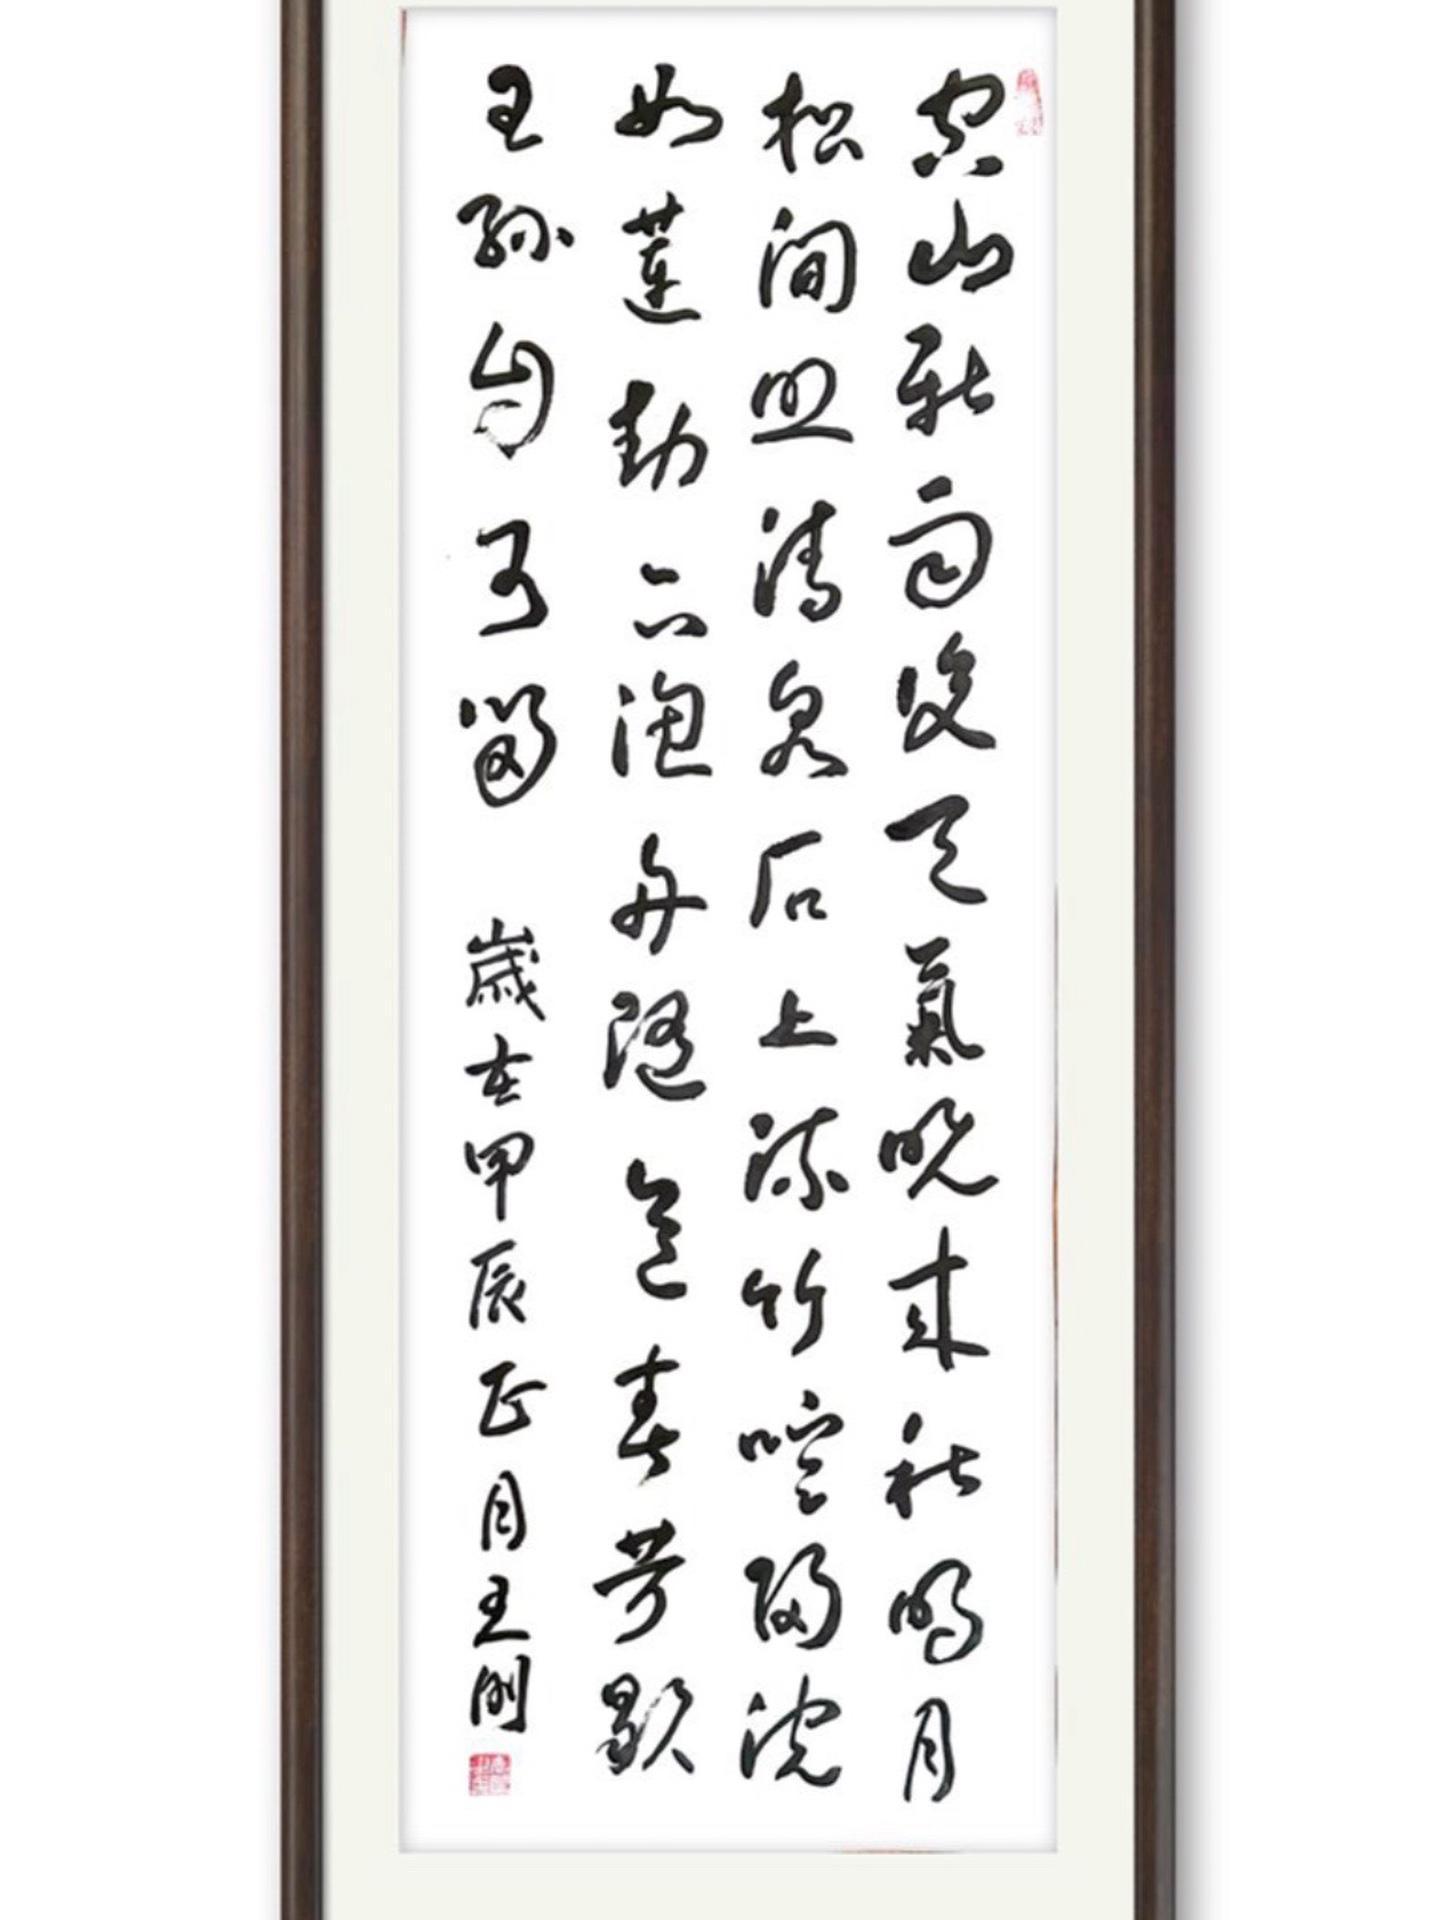 空山新雨後天氣晚來秋明月
松間照清泉石上流竹喧歸浣
女蓮動下漁舟隨意春芳歇
王孫自可留 歲在甲辰正月王剛